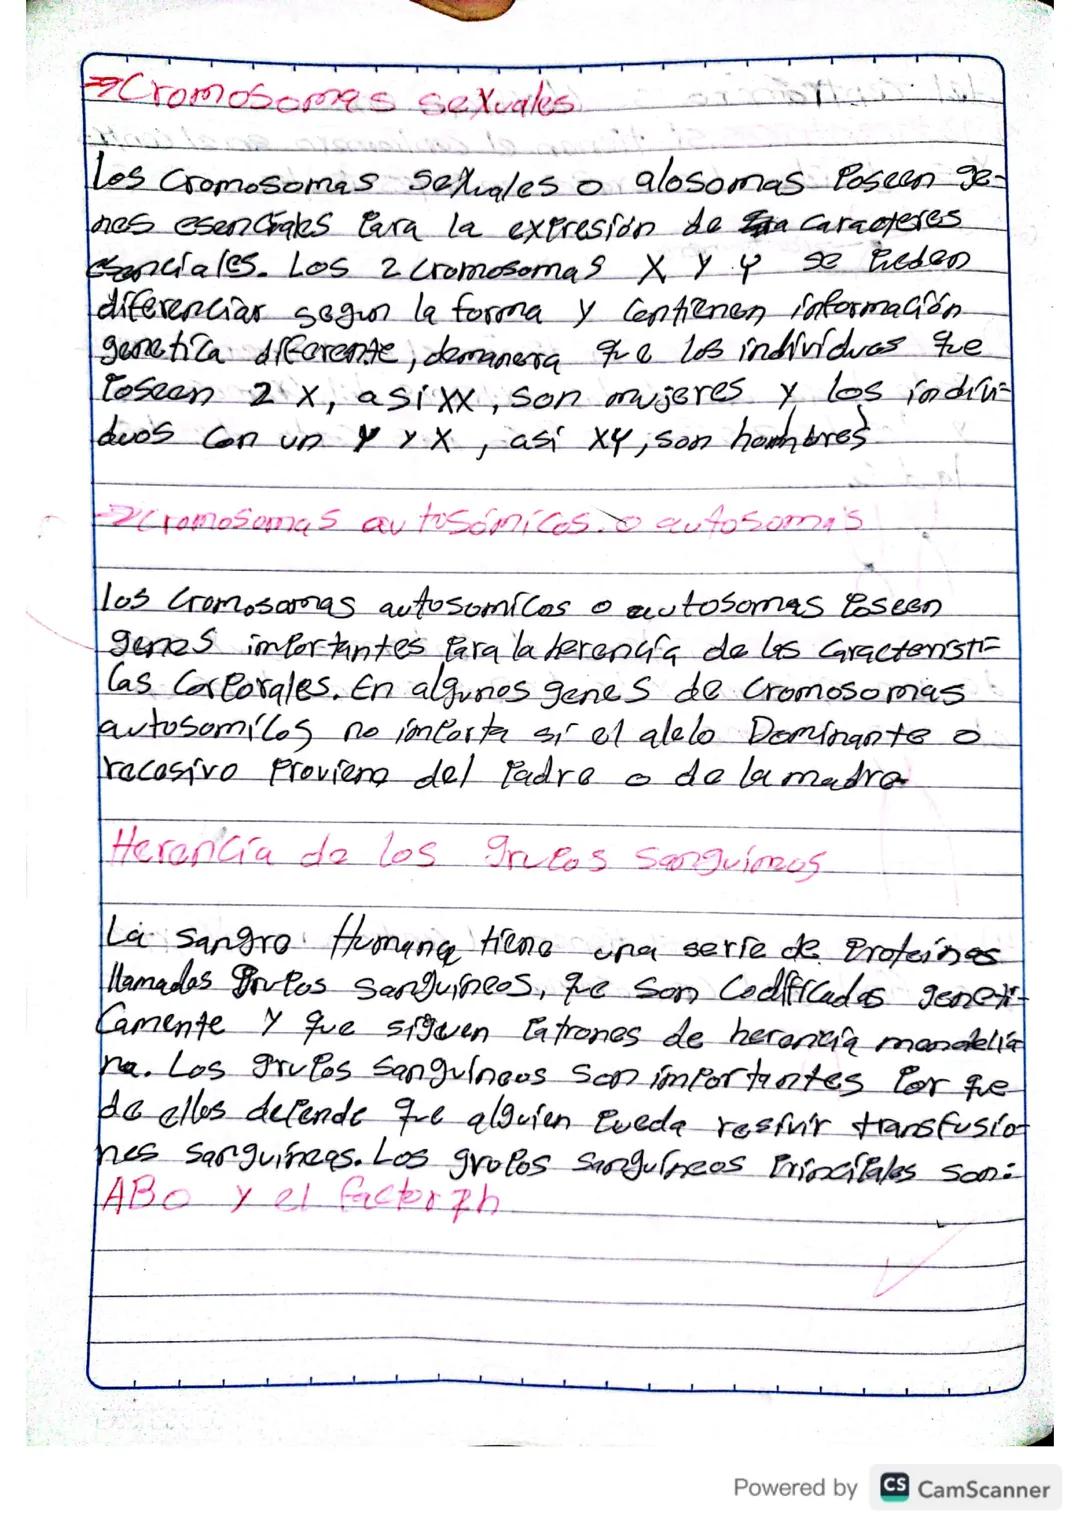 →Cromosomas sexuales
Los Cromosomas Sexuales o alosomas Poseen ge-
nes esenciales Para la expresión de caracteres
esenciales. Los 2 cromosomas X y Y se Pueden
diferenciar segun la forma y Contienen información
genetica diferente, demanera que los individuos que
Poseen 2 X, asi XX, son mujeres y los indivi-
duos Con un Y y X, así XY, son hombres
→Cromosomas autosómicos o autosomas
los Cromosomas autosomicos o autosomas Poseen
genes importantes Para la herencia de las Caracteristi-
Cas Corporales. En algunos genes de Cromosomas
autosomicos no importa si el alelo Dominante o
recesivo Proviene del Padre o de la madre
Herencia de los grupos Sanguineos
La Sangre Humana tiene una serie de Proteinas
llamadas Grupos Sanguineos, que son Codificadas geneti-
Camente y que siguen Patrones de herencia mendelia
na. Los grupos Sanguineos Son importantes Por que
de ellos depende que alguien Pueda resivir transfusio-
nes Sanguineas. Los grupos Sanguineos Principales son:
ABO y el factor rh
Powered by CS CamScanner